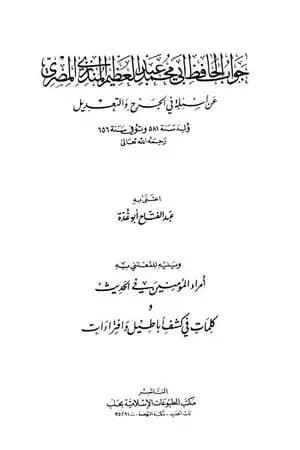 جواب الحافظ أبي محمد عبد العظيم المنذري المصري
عن أسئلة في الجرح والتعديل
ولد سنة ٥٨١ وتوفي سنة ٦٥٦
رحمه الله تعالى
اعتنى به
عبد الفتاح أبو غدة
ويليه للمعتني به
أمراء المؤمنين في الحديث
و
كلمات في كشف أباطيل وافتراءات
الناشر
مكتب المطبوعات الإسلامية بحلب
باب الحديد - مكتبة النهضة - ت ٣٥٢٩١